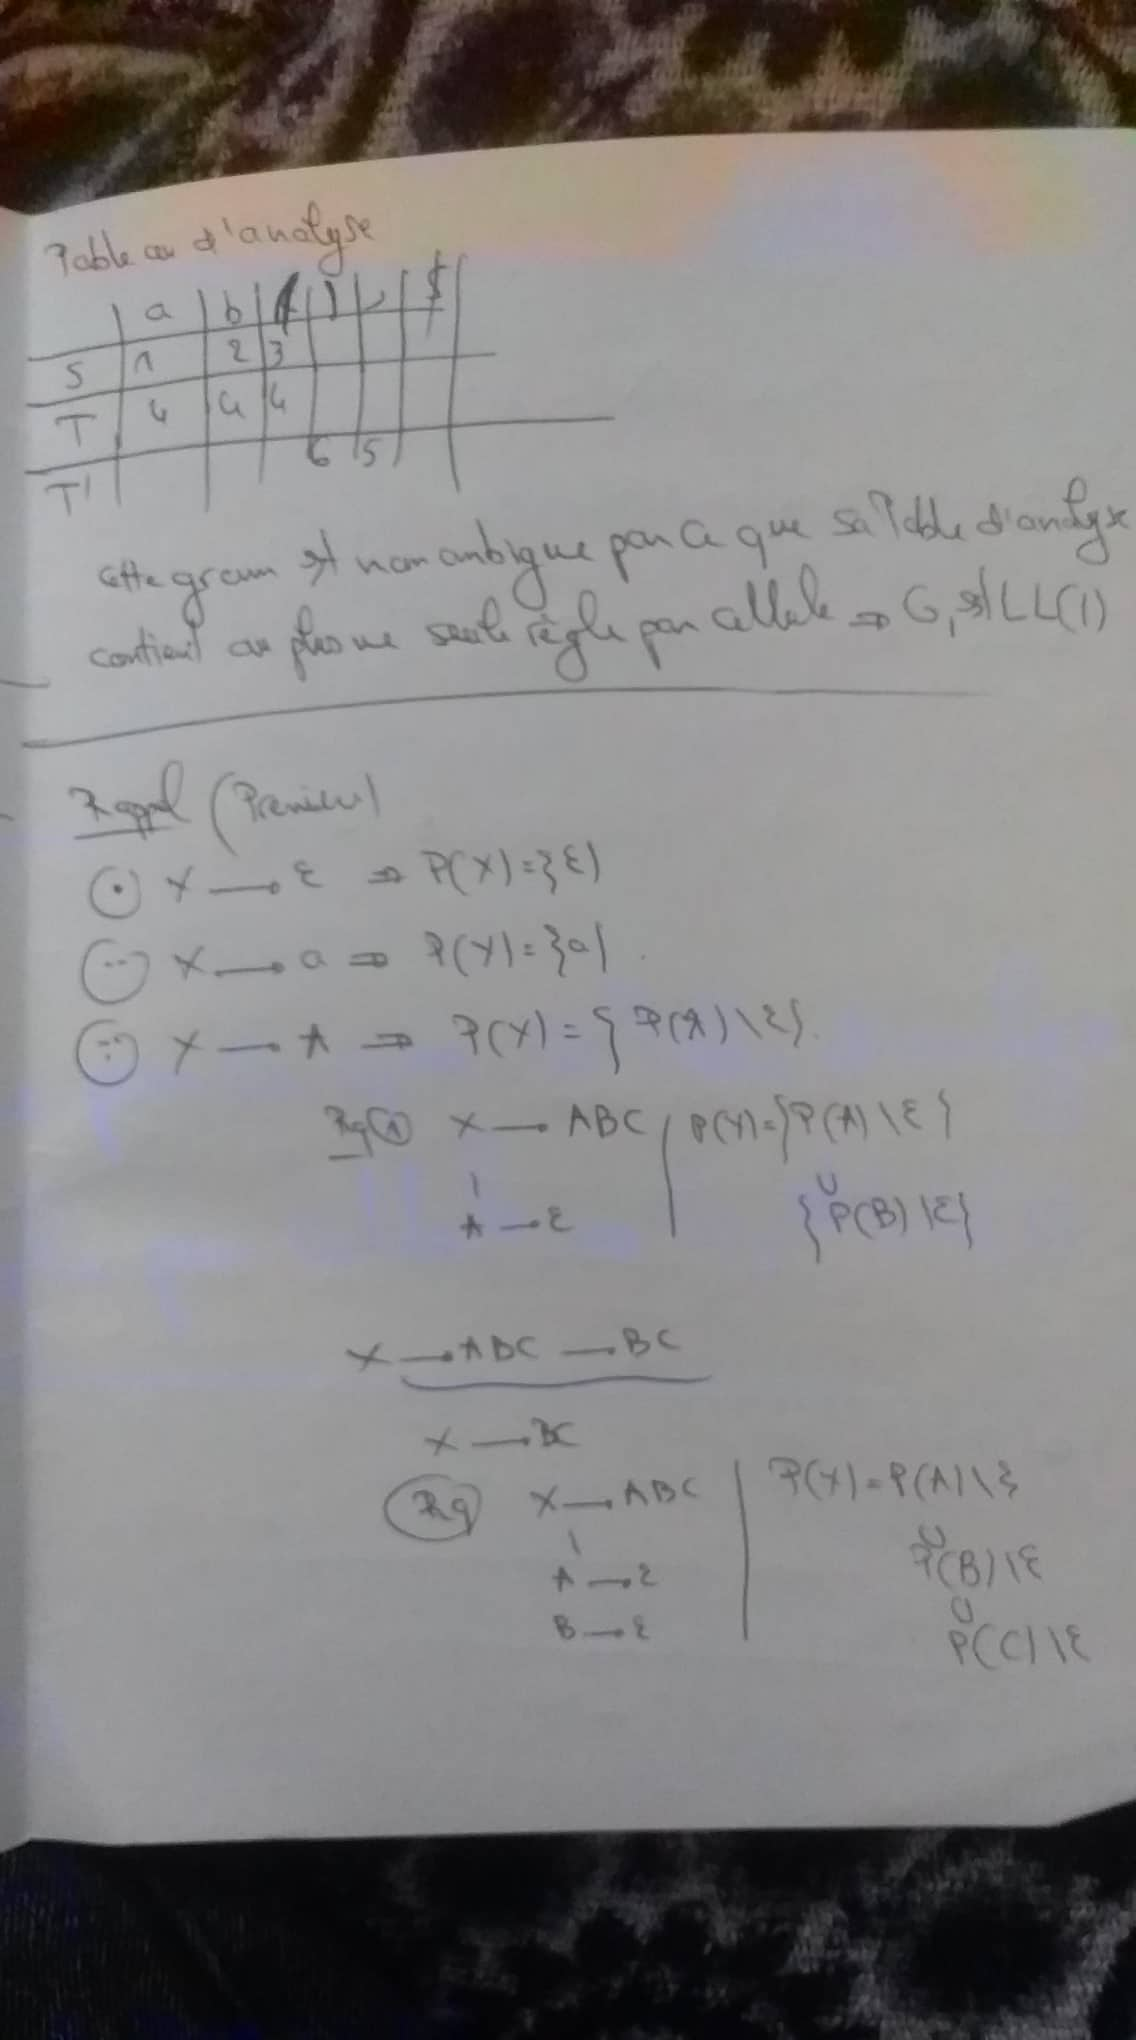 Tableau d'analyse
a b ( ) , $
S 1 2 3
T 4 4 4
T' 6 5
Cette gram st non ambigue par ce que sa Table d'analyse
contient au plus une seule règle par cellule ⇒ G, st LL(1)
Rappel (Premier)
⊙ X → ε ⇒ P(X) = {ε}
X → a ⇒ P(X) = {a}.
X → A ⇒ P(X) = {P(A) \ ε}.
Rq① X → ABC | P(X) = {P(A) \ ε}
A → ε ∪ {P(B) \ ε}
X → ABC → BC
X → BC
Rq X → ABC | P(X) = P(A) \ ε
A → ε ∪ P(B) \ ε
B → ε ∪ P(C) \ ε